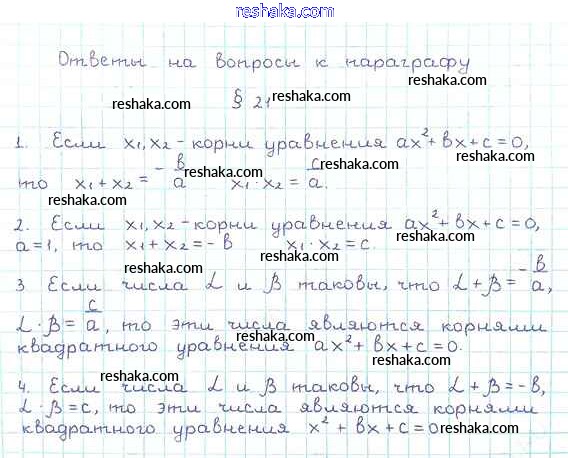 reshaka.com
Ответы на вопросы к параграфу
reshaka.com § 21 reshaka.com
1. Если x₁, x₂ - корни уравнения ax² + bx + c = 0,
reshaka.com
то x₁ + x₂ = - b/a reshaka.com x₁ · x₂ = c/a. reshaka.com
reshaka.com
2. Если x₁, x₂ - корни уравнения ax² + bx + c = 0,
a = 1, то x₁ + x₂ = - b x₁ · x₂ = c reshaka.com
reshaka.com
3 Если числа α и β таковы, что α + β = - b/a,
reshaka.com reshaka.com
α · β = c/a, то эти числа являются корнями
квадратного уравнения ax² + bx + c = 0.
reshaka.com
reshaka.com
4. Если числа α и β таковы, что α + β = - b,
reshaka.com
α · β = c, то эти числа являются корнями
квадратного уравнения x² + bx + c = 0 reshaka.com